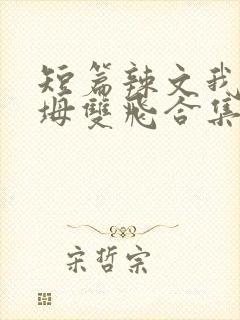 短篇辣文我
坶雙飛合集
宋哲宗